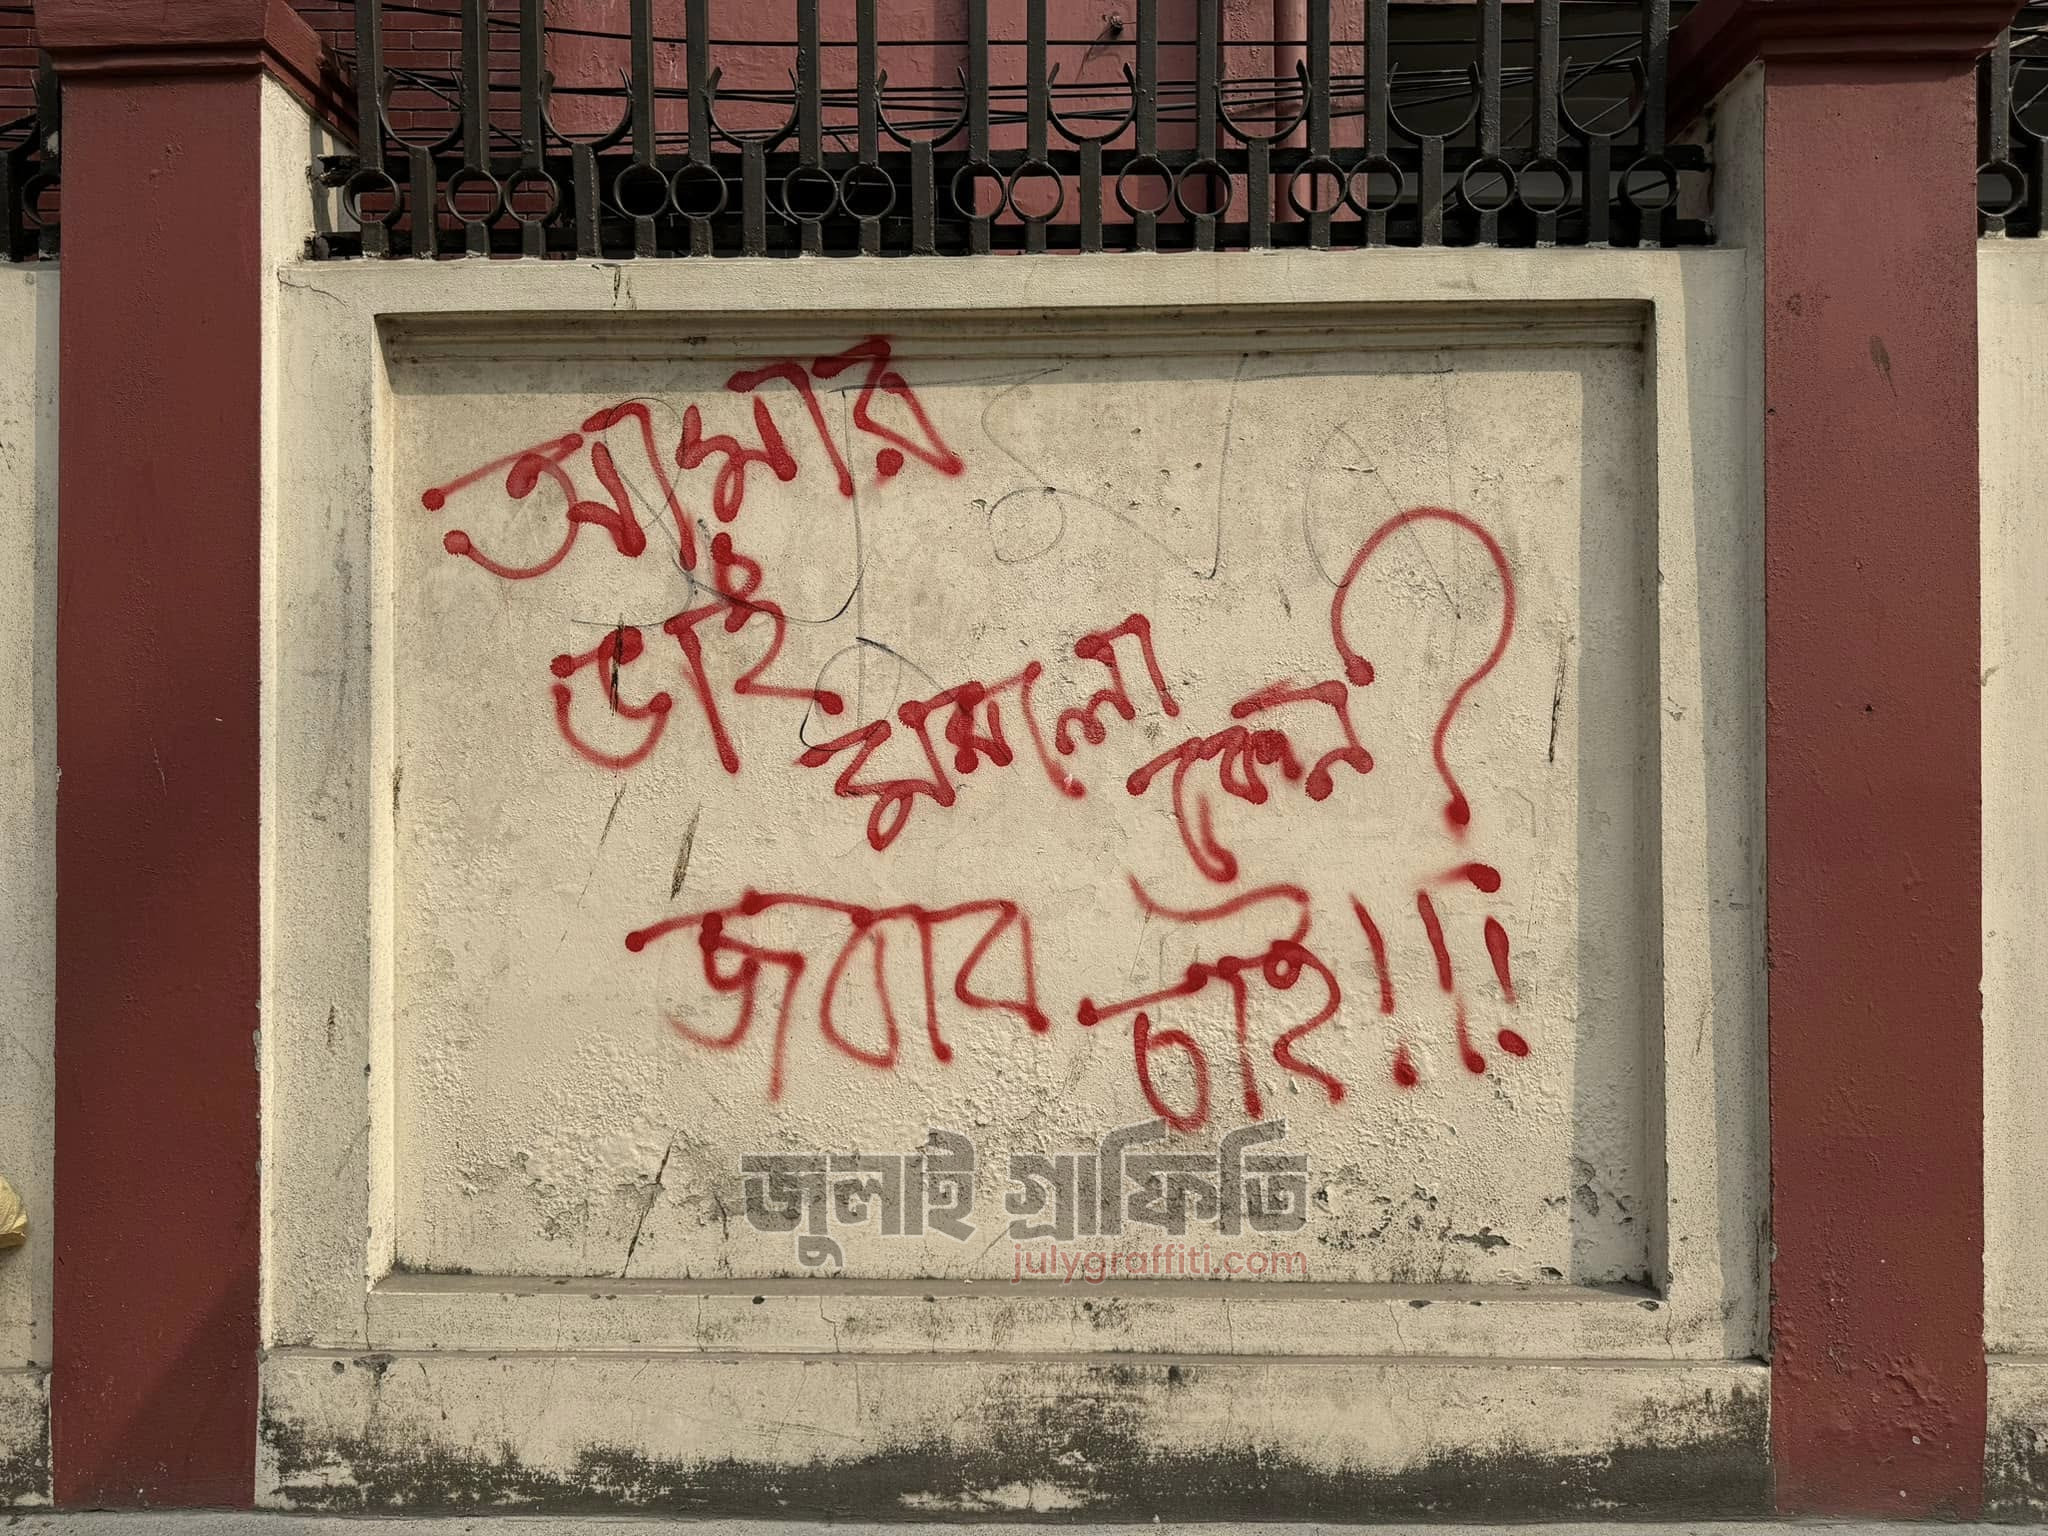 আমার
ভাই মরলো কেন?
জবাব চাই!!!
জুলাই গ্রাফিতি
julygraffiti.com